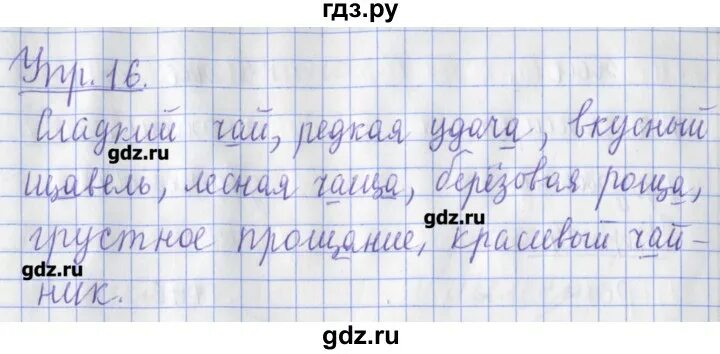 гдз.ру
Упр. 16.
Сладкий чай, редкая удача, вкусный
gdz.ru
щавель, лесная чаща, берёзовая роща,
gdz.ru
грустное прощание, красивый чай-
gdz.ru
ник.
gdz.ru